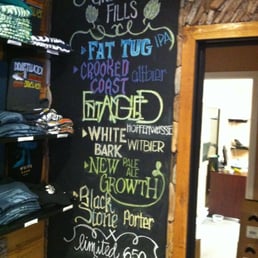 FILLS
FAT TUG IPA
CROOKED
COAST altbier
ENTANGLED
HOPFENWEISSE
WHITE
BARK WITBIER
NEW PALE ALE
GROWTH
Black
Stone Porter
X
limited 650